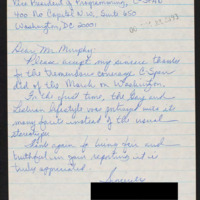 Vice President of Programming, C-SPAN
400 No Capitol N.W., Suite 650
Washington, DC 20001
Dear Mr. Murphy:
Please accept my sincere thanks
for the tremendous coverage C-Span
did of the March on Washington.
For the first time, the Gay and
Lesbian lifestyle was portrayed with all
many facets instead of the usual
stereotype.
Thank again for being fair and
truthful in your reporting it is
truly appreciated.
Sincerely